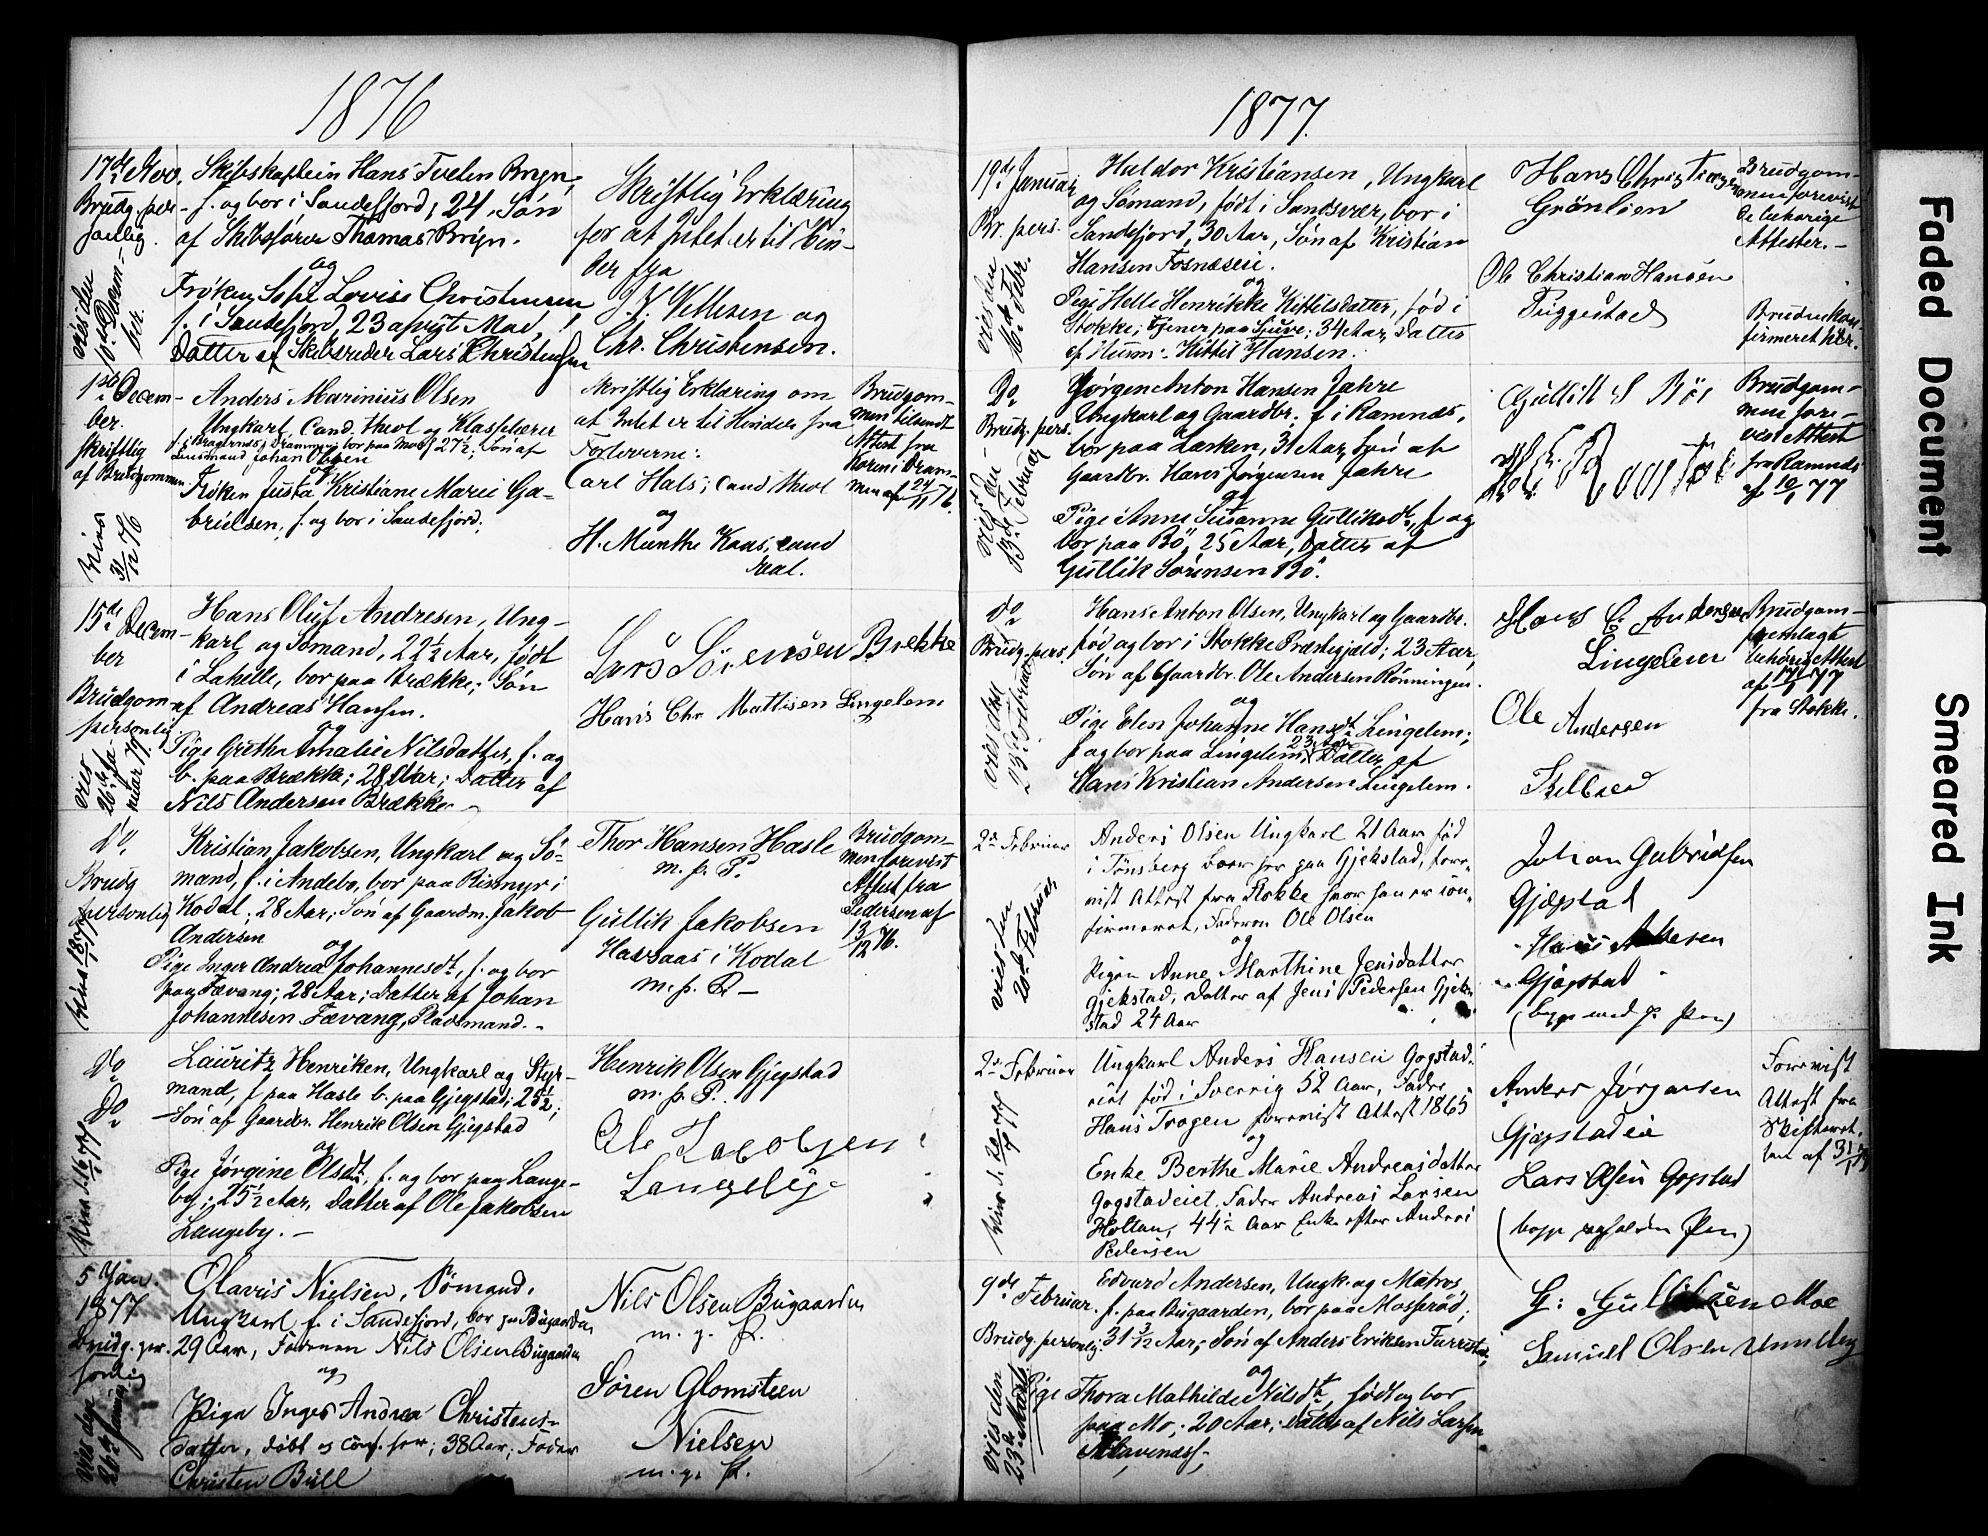 1876
17de Nov.
Brudg. per-
sonlig.
vies den
10de Decem-
ber.
Skibskaptein Hans Tvelen Bryn,
f. og bor i Sandefjord, 24, Søn
af Skibsfører Thomas Bryn.
og
Frøken Sofie Lovise Christensen
f. i Sandefjord, 23
Datter af Skibsreder Lars Christensen
Skriftlig Erklæring
for at Intet er til Hin-
der fra
J. J. Vettesen og
Chr. Christensen.
1ste Decem-
ber.
Skriftlig
af Brudgommen
31/12 76
Anders Marinius Olsen
Ungkarl, Cand. theol og Klasselærer
f. i Bragernes, Drammen, bor paa Mo 27½, Søn af
Lensmand Johan Olsen
og
Frøken Justa Kristiane Marie Ga-
brielsen, f. og bor i Sandefjord.
Skriftlig Erklæring om
at Intet er til Hinder fra
Forloverne:
Carl Hals; cand theol
og
H. Munthe Kaas, cand
real.
Brudgom-
men tilsendt
Attest fra
i Dram-
men af 24/11 76.
15de Decem-
ber
Brudgom-
personlig
vies
26de Ja-
nuar 77.
Hans Oluf Andresen, Ung-
karl og Sømand, 22½ Aar, født
i Lahelle, bor paa Brække; Søn
af Andreas Hansen.
og
Pige Grethe Amalie Nilsdatter, f. og
b. paa Brække; 28 Aar; Datter af
Nils Andersen Brække
Lars Sørensen Brekke
Hans Chr Mattisen Lingelem
Do.
Brudg
personlig
Kristian Jakobsen, Ungkarl og Sø-
mand, f. i Andebo, bor paa Rismyr i
Kodal; 28 Aar; Søn af Gaardm. Jakob
Andersen
og
Pige Inger Andrea Johannesdt, f. og bor
paa Fævang; 28 Aar; Datter af Johan
Johannesen Fævang, Pladsmand. -
Thor Hansen Hasle
m. p. P.
Gullik Jakobsen
Havsaas i Kodal
m. p. P -
Brudgom-
men forevist
Attest fra
Pedersen af
13/12 76.
Do
Do
Lauritz Henriksen, Ungkarl og Styr-
mand, f paa Hasle b. paa Gjegstad; 25½;
Søn af Gaardbr. Henrik Olsen Gjegstad
og
Pige Jørgine Olsdt, f. og bor paa Lange-
by; 25½ Aar, Datter af Ole Jakobsen
Langeby. -
Henrik Olsen Gjegstad
m. p. P.
Ole Jacobsen
Langeby
5 Jan.
1877
Brudg. per-
sonlig
vies den
26de Januar
Olavus Nielsen, Sømand,
Ungkarl, f. i Sandefjord, bor paa Bugaarden
29 Aar, Faderen Nils Olsen Bugaarden
og
Pigen Inger Andrea Christens-
datter, født og conf. her; 38 Aar; Fader
Christen Bull
Nils Olsen Bugaarden
m. p. P.
Søren Glomsteen
Nielsen
m. p. P.
1877.
19de Januar
Br. pers.
vies den
16de Febr.
Haldor Kristiansen, Ungkarl
og Sømand, født i Sandsvær, bor i
Sandefjord, 30 Aar, Søn af Kristian
Hansen Fosnæseie.
og
Pige Helle Henrikke Kittilsdatter, fød i
Stokke; tjener paa Gjuve; 34 Aar, Datter
af Husm. Kittil Hansen.
Hans Christiansen
Grønlien
Ole Christian Hansen
Fuggestad
Brudgom-
men forevist
de behørige
Attester. -
Bruden kon-
firmeret her.
Do.
Brudg. pers.
vies den
13de Februar
Jørgen Anton Hansen Jahre
Ungkarl og Gaardbr. f. i Ramnæs,
bor paa Lasken, 31 Aar, Søn af
Gaardbr. Hans Jørgensen Jahre
og
Pige Anne Susanne Gulliksdt, f. og
bor paa Bø, 25 Aar, Datter af
Gullik Sørensen Bø.
Gullik S Bøe
Brudgom-
men fore-
vist Attest
fra Ramnæs
af 10/1 77
do
Brudg. pers.
vies den
23de Februar
Hans Anton Olsen, Ungkarl og Gaardbr.
fød og bor i Stokke Præstegjæld; 23 Aar,
Søn af Gaardbr. Ole Andersen Rønningen.
og
Pige Elen Johanne Hansdt Lingelem;
f og bor paa Lingelem, 23 Aar Datter af
Hans Kristian Andersen Lingelem.
Hans C. Andersen
Lingelem
Ole Andersen
Brudgom-
fremlagt
behørig Attest
af 77
fra Stokke.
2de Februar
vies den
20de Februar
Anders Olsen Ungkarl 21 Aar fød
i Tønsberg boer her paa Gjekstad, fore-
vist Attest fra Stokke hvor han er con-
firmeret, Faderen Ole Olsen
og
Pigen Anne Marthine Jensdatter
Gjekstad, datter af Jens Pedersen Gjek-
stad 24 Aar
Johan Gabrielsen
Gjægstad
Gjøgstad
(begge med p. Pen)
2de Februar
Ungkarl Anders Hansen Gogstad-
eiet fød i Sverrig 52 Aar, Fader
Hans Trogen forevist Attest 1865
og
Enke Berthe Marie Andreasdatter
Gogstadeiet. Fader Andreas Larsen
Holtan, 44½ Aar Enke efter Anders
Pedersen
Anders Jørgensen
Gjøgstadeie
Lars Olsen Gogstad
(begge paaholden Pen)
Forevist
Attest fra
Skifteret-
ten af
9de Februar.
Brudg. personlig.
vies den
23de Marts.
Edvard Andersen, Ungk. og Matros,
f. paa Bugaarden, bor paa Mosserød,
31 Aar, Søn af Anders Eriksen Furustad,
og
Pige Thora Mathilde Nilsdt, født og bor
paa Mo; 20 Aar; Datter af Nils Larsen
Klavenæs,
G: Gulliksen Moe
Samuel Olsen Unneberg
Faded Document
Smeared Ink